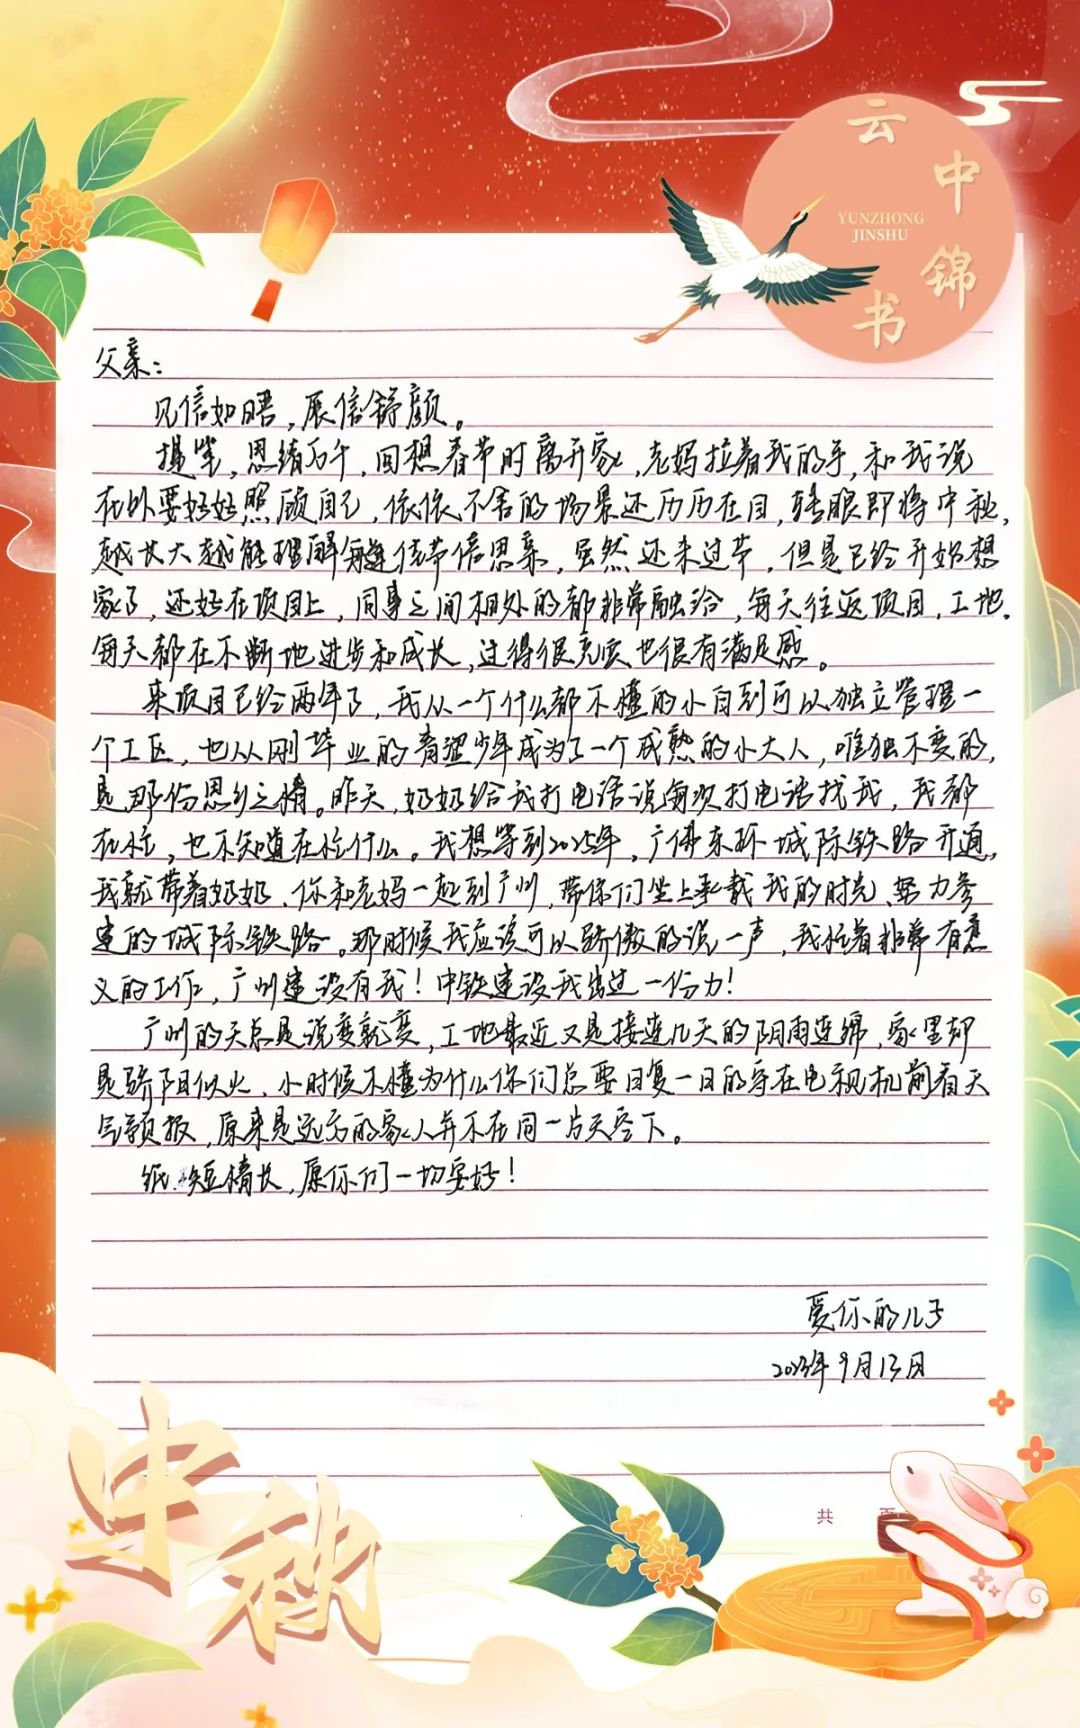 云中锦书
YUNZHONG
JINSHU
父亲：
见信如晤，展信舒颜。
提笔，思绪万千，回想春节时离开家，老妈拉着我的手，和我说
在外要好好照顾自己，依依不舍的场景还历历在目，转眼即将中秋，
越长大越能理解每逢佳节倍思亲，虽然还未过节，但是已经开始想
家了，还好在项目上，同事之间相处的都非常融洽，每天往返项目、工地，
每天都在不断地进步和成长，过得很充实也很有满足感。
来项目已经两年了，我从一个什么都不懂的小白到可以独立管理一
个工区，也从刚毕业的青涩少年成为了一个成熟的小大人，唯独不变的，
是那份思乡之情。昨天，奶奶给我打电话说每次打电话找我，我都
在忙，也不知道在忙什么。我想等到2025年，广佛东环城际铁路开通，
我就带着奶奶、你和老妈一起到广州，带你们坐上承载我的时光、努力参
建的城际铁路。那时候我应该可以骄傲的说一声，我忙着非常有意
义的工作，广州建设有我！中铁建设我出过一份力！
广州的天总是说变就变，工地最近又是接连几天的阴雨连绵，家里却
是骄阳似火、小时候不懂为什么你们总要日复一日的守在电视机前看天
气预报，原来是远方的家人并不在同一片天空下。
纸短情长，愿你们一切安好！
爱你的儿子
2023年9月13日
共 页
中秋